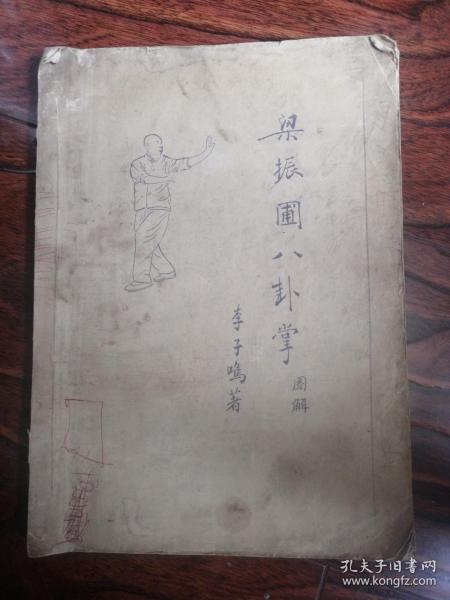 梁振圃八卦掌
图解
李子鳴著
孔夫子旧书网
www.kongfz.com